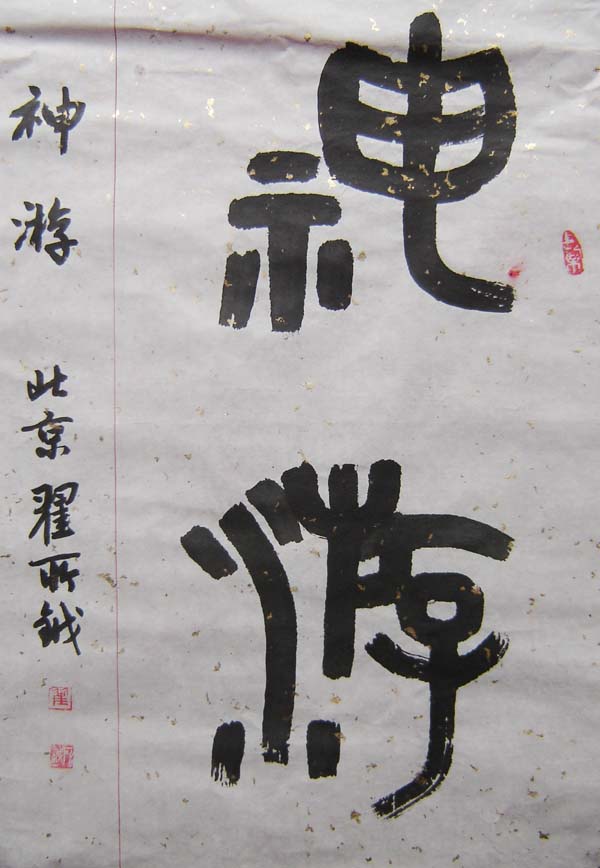 神游
神游
北京翟所钺